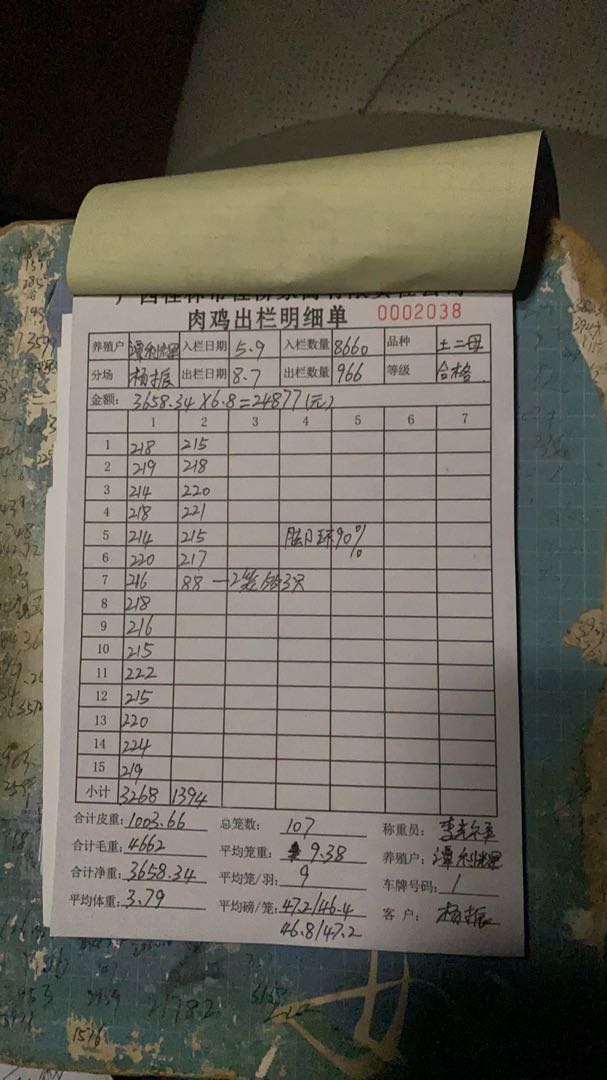 肉鸡出栏明细单 0002038
养殖户 入栏日期 5.9 入栏数量 8660 品种 土二母
分场 杨振 出栏日期 8.7 出栏数量 966 等级 合格
金额: 3658.34×6.8=24877(元)
1 2 3 4 5 6 7
1 218 215
2 219 218
3 214 220
4 218 221
5 214 215 90%
6 220 217
7 216 88 一2笼
8 218
9 216
10 215
11 222
12 215
13 220
14 224
15 219
小计 3268 1394
合计皮重: 1003.66 总笼数: 107 称重员:
合计毛重: 4662 平均笼重: 9.38 养殖户:
合计净重: 3658.34 平均笼/羽: 9 车牌号码: 1
平均体重: 3.79 平均磅/笼: 47.2/46.4 客户: 杨振
46.8/47.2